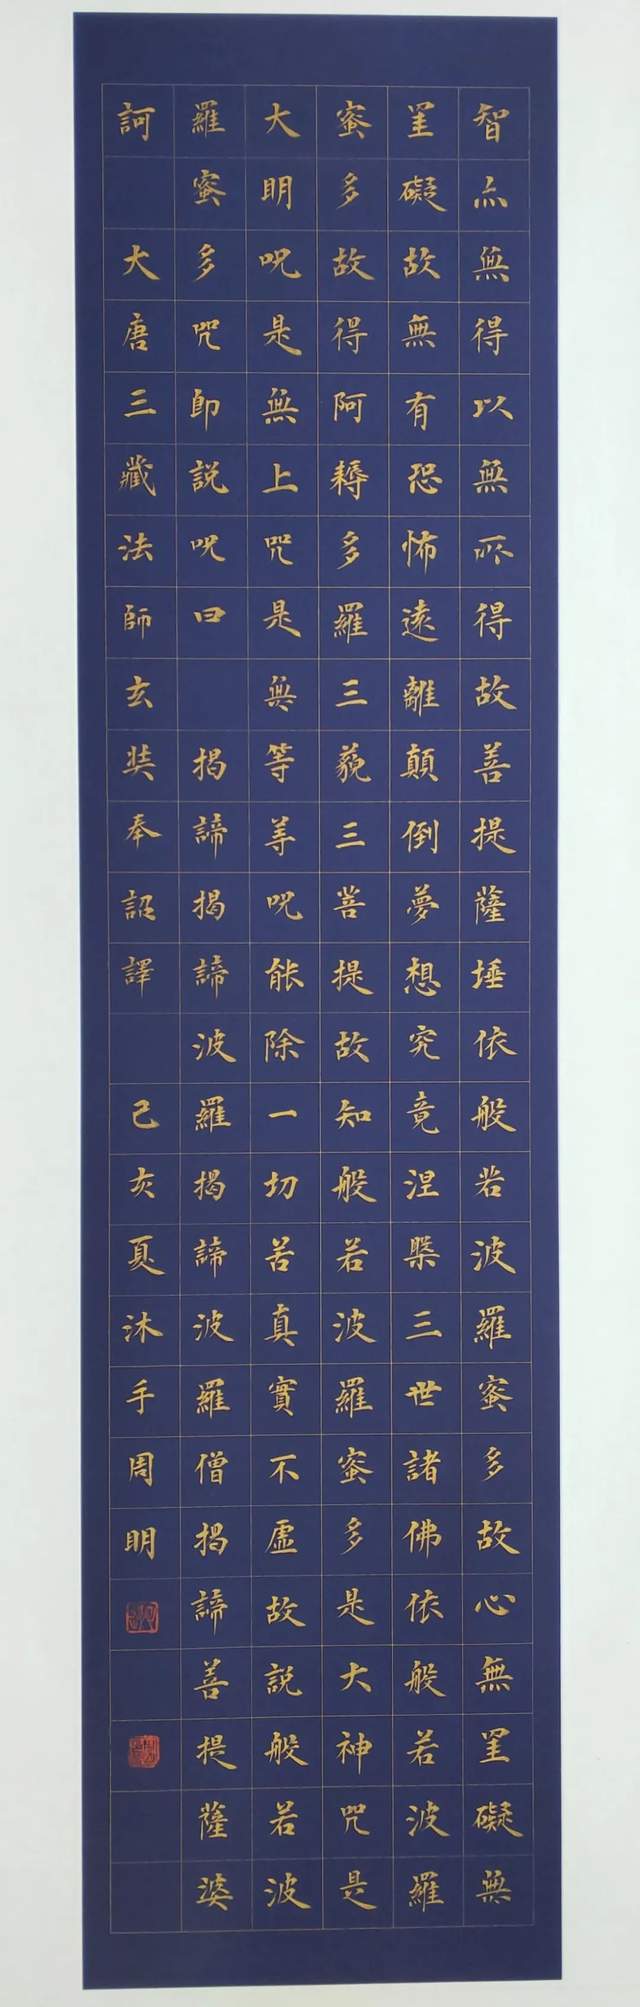 智亦無得以無所得故菩提薩埵依般若波羅蜜多故心無罣礙無
罣礙故無有恐怖遠離顛倒夢想究竟涅槃三世諸佛依般若波羅
蜜多故得阿耨多羅三藐三菩提故知般若波羅蜜多是大神咒是
大明呪是無上咒是無等等呪能除一切苦真實不虛故説般若波
羅蜜多咒即説呪曰 揭諦揭諦波羅揭諦波羅僧揭諦菩提薩婆
訶 大唐三藏法師玄奘奉詔譯 己亥夏沐手周明